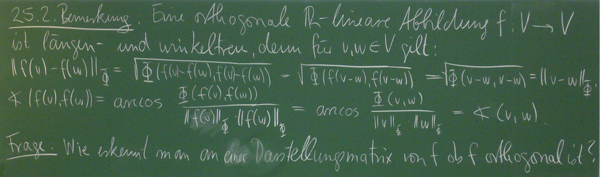 25.2. Bemerkung. Eine orthogonale ℝ-lineare Abbildung f: V → V
ist längen- und winkeltreu, denn für v,w ∈ V gilt:
‖f(v)-f(w)‖_Φ = √Φ(f(v)-f(w), f(v)-f(w)) = √Φ(f(v-w), f(v-w)) = √Φ(v-w, v-w) = ‖v-w‖_Φ.
∢(f(v),f(w)) = arccos Φ(f(v),f(w)) / ‖f(v)‖_Φ · ‖f(w)‖_Φ = arccos Φ(v,w) / ‖v‖_Φ ‖w‖_Φ = ∢(v,w).
Frage: Wie erkennt man an einer Darstellungsmatrix von f ob f orthogonal ist?